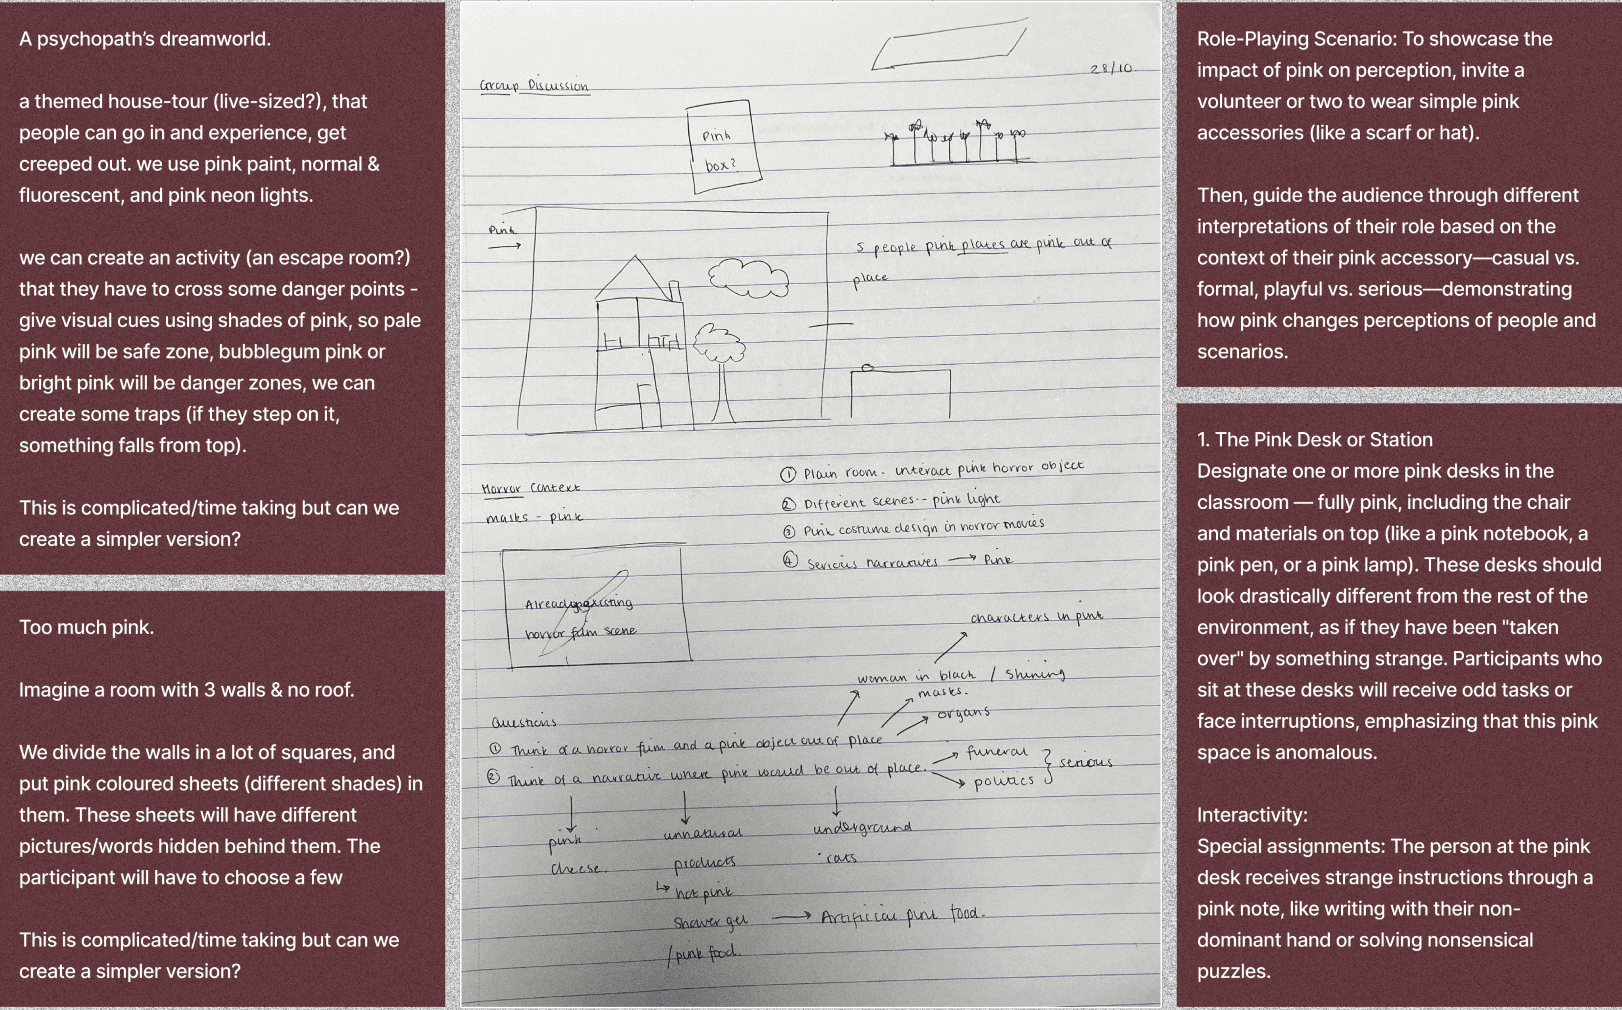 A psychopath's dreamworld.
a themed house-tour (live-sized?), that
people can go in and experience, get
creeped out. we use pink paint, normal &
fluorescent, and pink neon lights.
we can create an activity (an escape room?)
that they have to cross some danger points -
give visual cues using shades of pink, so pale
pink will be safe zone, bubblegum pink or
bright pink will be danger zones, we can
create some traps (if they step on it,
something falls from top).
This is complicated/time taking but can we
create a simpler version?
Too much pink.
Imagine a room with 3 walls & no roof.
We divide the walls in a lot of squares, and
put pink coloured sheets (different shades) in
them. These sheets will have different
pictures/words hidden behind them. The
participant will have to choose a few
This is complicated/time taking but can we
create a simpler version?
28/10
Group Discussion
Pink
box?
Pink
5 people pink plates are pink out of
place
① Plain room - interact pink horror object
② Different scenes - pink light
③ Pink costume design in horror movies
④ Serious narratives → Pink
Horror Context
masks - pink
Already existing
horror film scene
characters in pink
woman in black / Shining
masks.
organs
Questions
① Think of a horror film and a pink object out of place
② Think of a narrative where pink would be out of place.
funeral
politics
serious
pink
cheese.
unnatural
products
↳ hot pink
Shower gel → Artificial pink food.
/pink food.
underground
rats
Role-Playing Scenario: To showcase the
impact of pink on perception, invite a
volunteer or two to wear simple pink
accessories (like a scarf or hat).
Then, guide the audience through different
interpretations of their role based on the
context of their pink accessory—casual vs.
formal, playful vs. serious—demonstrating
how pink changes perceptions of people and
scenarios.
1. The Pink Desk or Station
Designate one or more pink desks in the
classroom — fully pink, including the chair
and materials on top (like a pink notebook, a
pink pen, or a pink lamp). These desks should
look drastically different from the rest of the
environment, as if they have been "taken
over" by something strange. Participants who
sit at these desks will receive odd tasks or
face interruptions, emphasizing that this pink
space is anomalous.
Interactivity:
Special assignments: The person at the pink
desk receives strange instructions through a
pink note, like writing with their non-
dominant hand or solving nonsensical
puzzles.